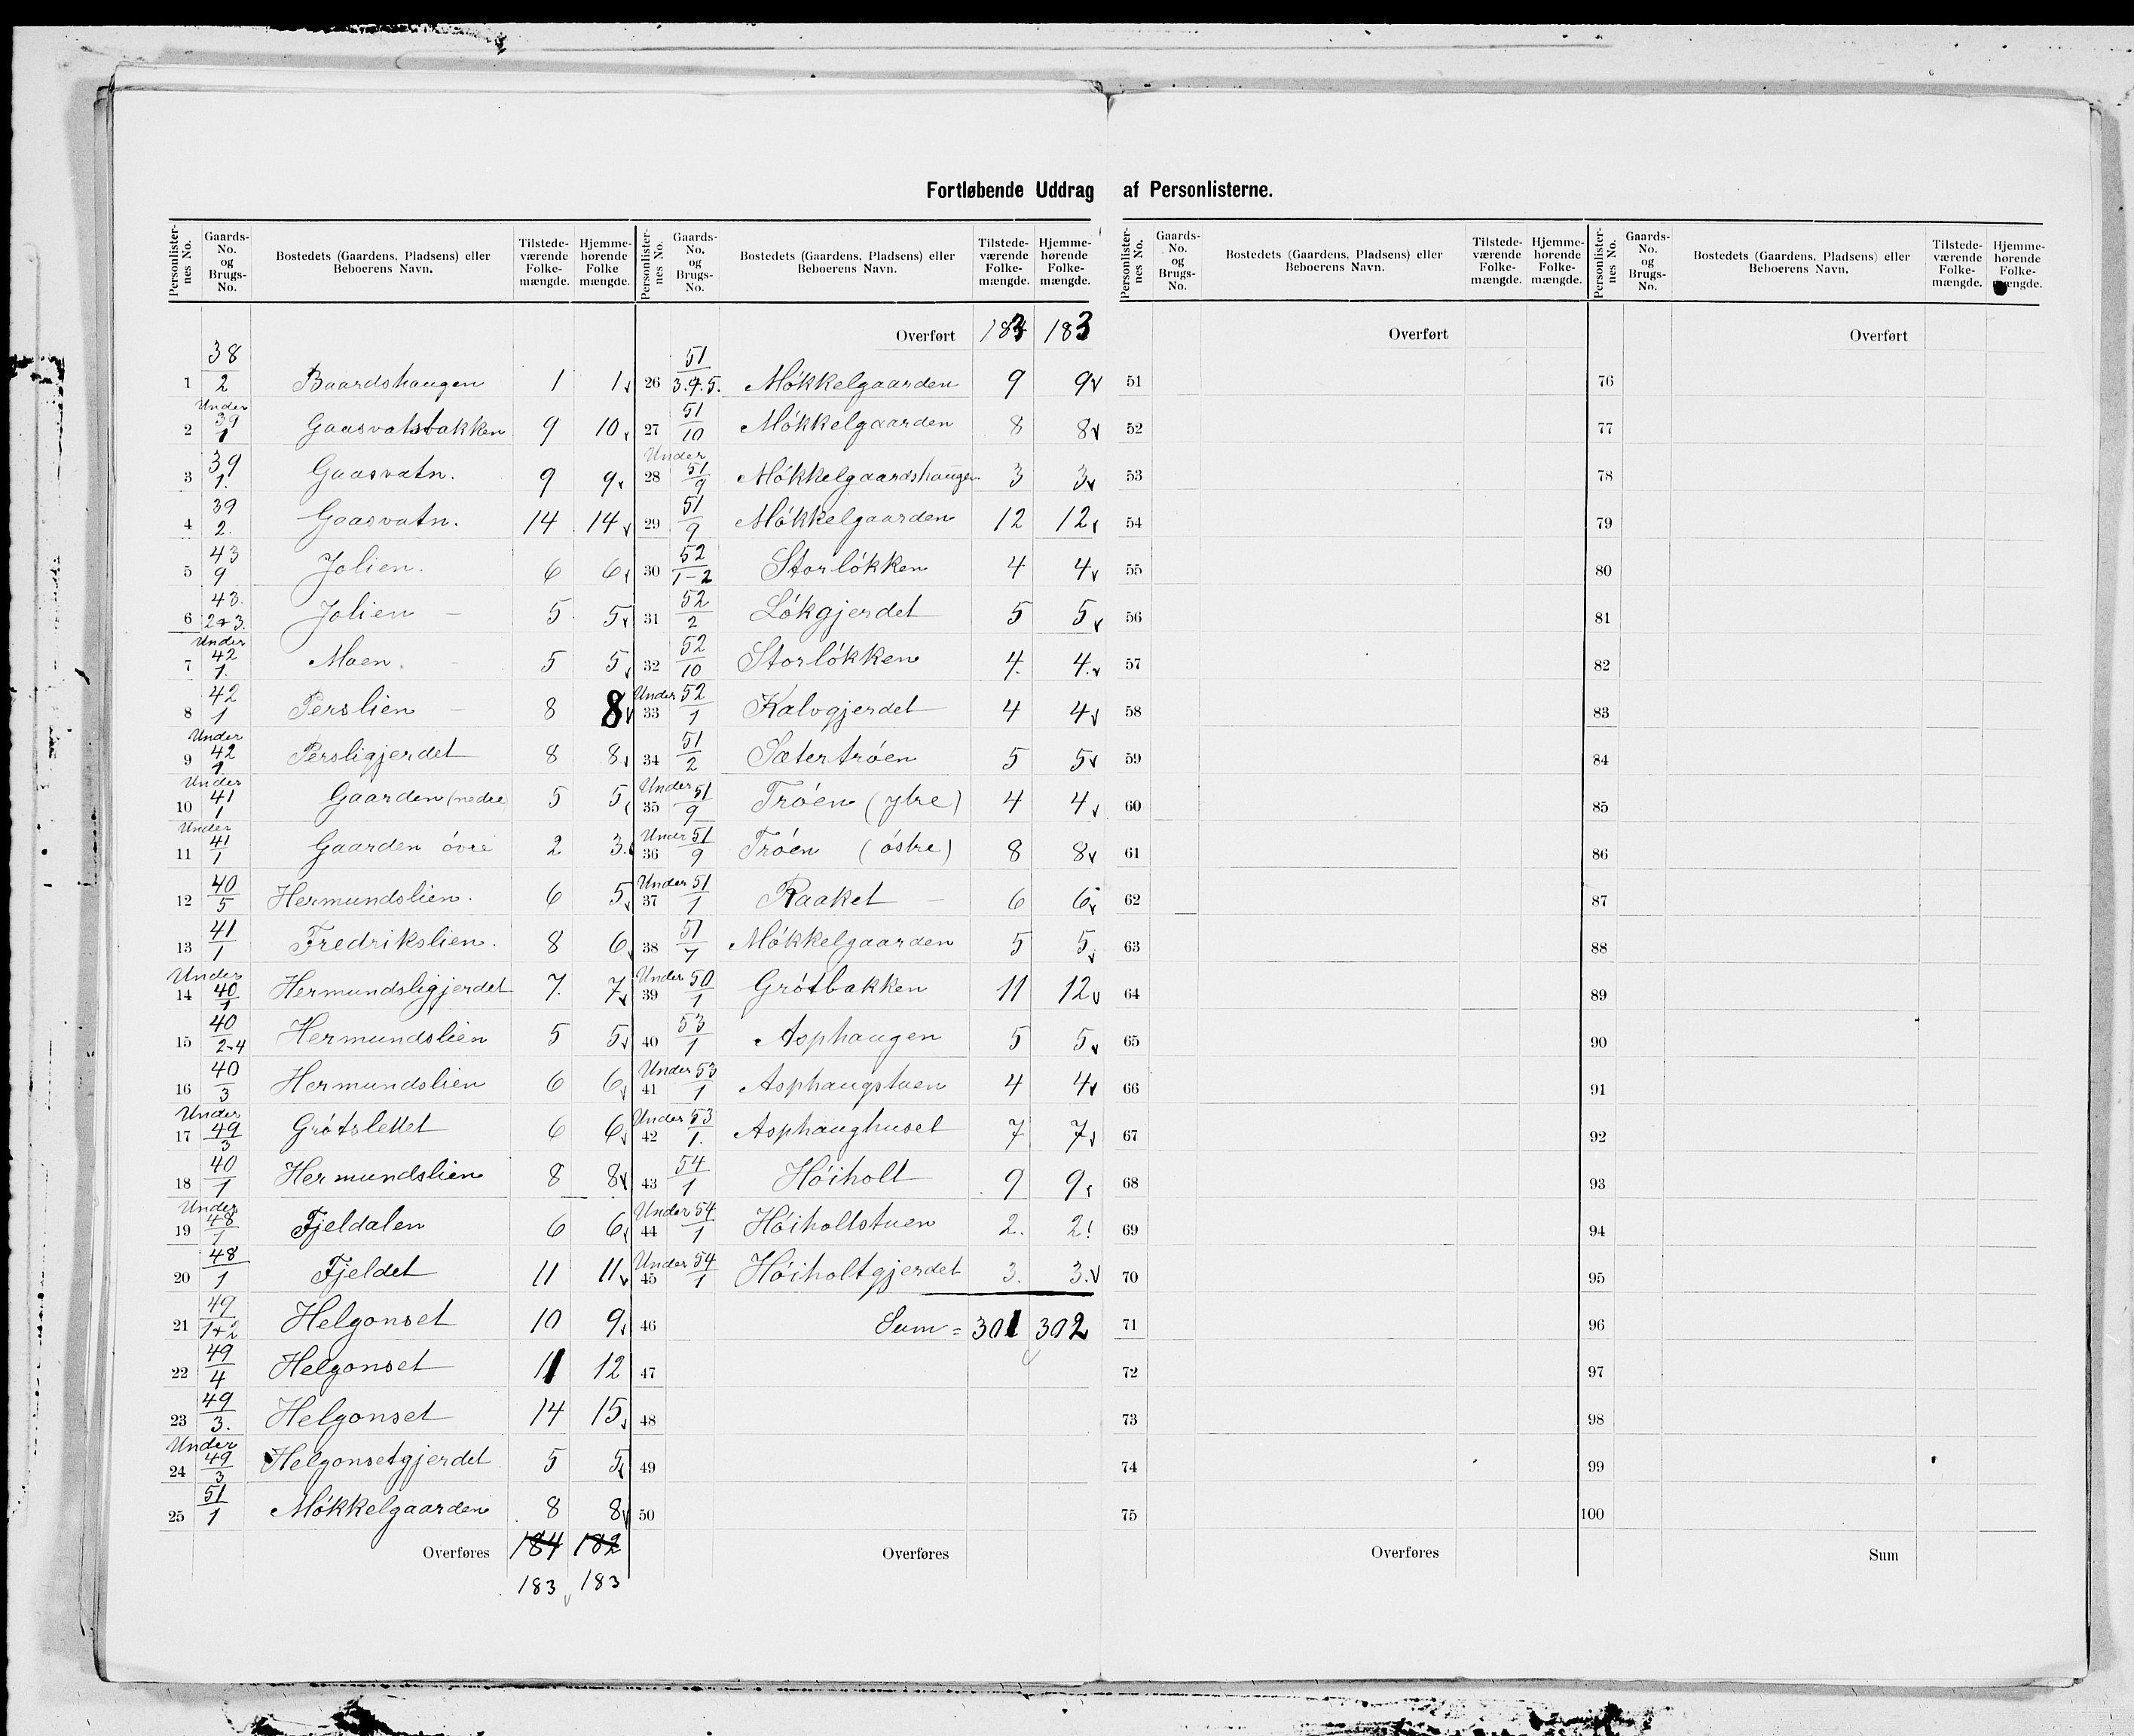 Fortløbende Uddrag af Personlisterne.
Personlister-nes No. | Gaards-No. og Brugs-No. | Bostedets (Gaardens, Pladsens) eller Beboerens Navn. | Tilstede-værende Folke-mængde. | Hjemme-hørende Folke mængde.
1 | 38/2 | Baardshaugen | 1 | 1
2 | Under 39/1 | Gaasvatsbakken | 9 | 10
3 | 39/1. | Gaasvatn. | 9 | 9
4 | 39/2. | Gaasvatn. | 14 | 14
5 | 43/9 | Jolien. | 6 | 6
6 | 43./2+3. | Jolien – | 5 | 5
7 | Under 42/1. | Moen. | 5 | 5
8 | 42/1 | Perslien – | 8 | 8
9 | Under 42/1 | Persligjerdet | 8 | 8
10 | Under 41/1 | Gaarden (nedre) | 5 | 5
11 | Under 41/1 | Gaarden óvre | 2 | 3.
12 | 40/5 | Hermundslien. | 6 | 5
13 | 41/1 | Fredrikslien. | 8 | 6
14 | Under 40/1 | Hermundsligjerdet | 7. | 7
15 | 40/2-4 | Hermundslien | 5 | 5
16 | 40/3 | Hermundslien | 6 | 6
17 | Under 49/3 | Grótslettet | 6 | 6
18 | 40/1 | Hermundslien | 8 | 8
19 | Under 48/1 | Fjeldalen | 6 | 6
20 | 48/1 | Fjeldet | 11 | 11
21 | 49/1+2 | Helgonset | 10 | 9
22 | 49/4 | Helgonset | 11 | 12
23 | 49/3. | Helgonset | 14 | 15
24 | Under 49/3 | Helgonsetgjerdet | 5 | 5
25 | 51/1 | Mókkelgaarden | 8 | 8
Overføres 184 182
183 183
Personlister-nes No. | Gaards-No. og Brugs-No. | Bostedets (Gaardens, Pladsens) eller Beboerens Navn. | Tilstede-værende Folke-mængde. | Hjemme-hørende Folke-mængde.
Overført 183 183
26 | 51/3.4.5. | Mókkelgaarden | 9 | 9
27 | 51/10 | Mókkelgaarden | 8 | 8
28 | Under 51/9 | Mókkelgaardshaugen | 3 | 3
29 | 51/9 | Mókkelgaarden | 12 | 12
30 | 52/1-2 | Storlókken | 4 | 4
31 | 52/2 | Lókgjerdet | 5 | 5
32 | 52/10 | Storlókken | 4. | 4.
33 | Under 52/1 | Kalvgjerdet | 4 | 4
34 | 51/2 | Sætertróen | 5 | 5
35 | Under 51/9 | Tróen (ytre) | 4 | 4
36 | Under 51/9 | Tróen (óstre) | 8 | 8
37 | Under 51/1 | Raaket – | 6 | 6
38 | 51/7 | Mókkelgaarden | 5 | 5
39 | Under 50/1 | Grótbakken | 11 | 12
40 | 53/1 | Asphaugen | 5 | 5
41 | Under 53/1 | Asphaugstuen | 4 | 4
42 | Under 53/1. | Asphaughuset | 7 | 7
43 | 54/1 | Hóiholt | 9 | 9
44 | Under 54/1 | Hóiholtstuen | 2. | 2
45 | Under 54/1 | Hóiholtgjerdet | 3. | 3.
46 | Sum = 301 302
47
48
49
50
Overføres
Personlister-nes No. | Gaards-No. og Brugs-No. | Bostedets (Gaardens, Pladsens) eller Beboerens Navn. | Tilstede-værende Folke-mængde. | Hjemme-hørende Folke-mængde.
Overført
51
52
53
54
55
56
57
58
59
60
61
62
63
64
65
66
67
68
69
70
71
72
73
74
75
Overføres
Personlister-nes No. | Gaards-No. og Brugs-No. | Bostedets (Gaardens, Pladsens) eller Beboerens Navn. | Tilstede-værende Folke-mængde. | Hjemme-hørende Folke-mængde.
Overført
76
77
78
79
80
81
82
83
84
85
86
87
88
89
90
91
92
93
94
95
96
97
98
99
100
Sum